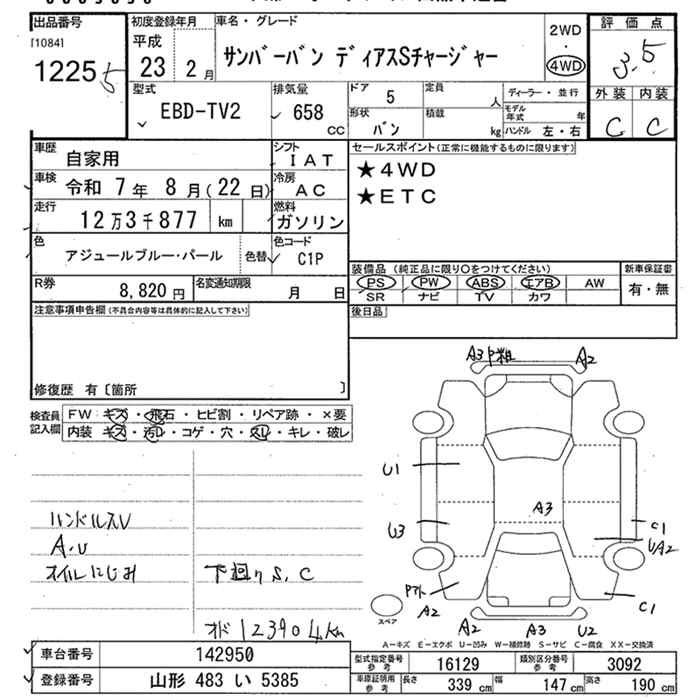 出品番号
[1084]
1225 5
初度登録年月
平成
23 2月
車名・グレード
サンバーバン ディアスSチャージャー
2WD
・
4WD
評価点
3.5
外装 内装
C C
型式
EBD-TV2
排気量
658
CC
ドア 5
定員 人
形状
バン
積載 kg
ディーラー・並行
モデル年式 年
ハンドル 左・右
車歴
自家用
シフト
IAT
車検
令和 7年 8月(22日)
冷房
AC
走行
12万3千877 km
燃料
ガソリン
色
アジュールブルー・パール
色替
色コード
C1P
R券
8,820円
名変通知期限
月 日
セールスポイント(正常に機能するものに限ります)
★4WD
★ETC
装備品 (純正品に限り○をつけてください)
PS PW ABS エアB AW
SR ナビ TV カワ
新車保証書
有・無
後日品
注意事項申告欄(不具合内容等は具体的に記入して下さい)
修復歴 有〔箇所 〕
検査員
記入欄
FW キズ・飛石・ヒビ割・リペア跡・×要
内装 キズ・汚レ・コゲ・穴・スレ・キレ・破レ
ハンドルスレ
A.U
オイルにじみ
下回りS、C
オド 123904km
A3 中粗
A2
U1
U3
A3
C1
UA2
Pアト
A2
C1
スペア
A2 A3 U2
A-キズ E-エクボ U-凹み W-補修跡 S-サビ C-腐食 XX-交換済
車台番号
142950
登録番号
山形 483 い 5385
型式指定番号
参考
16129
類別区分番号
参考
3092
車庫証明用
参考
長さ 339 cm
幅 147 cm
高さ 190 cm